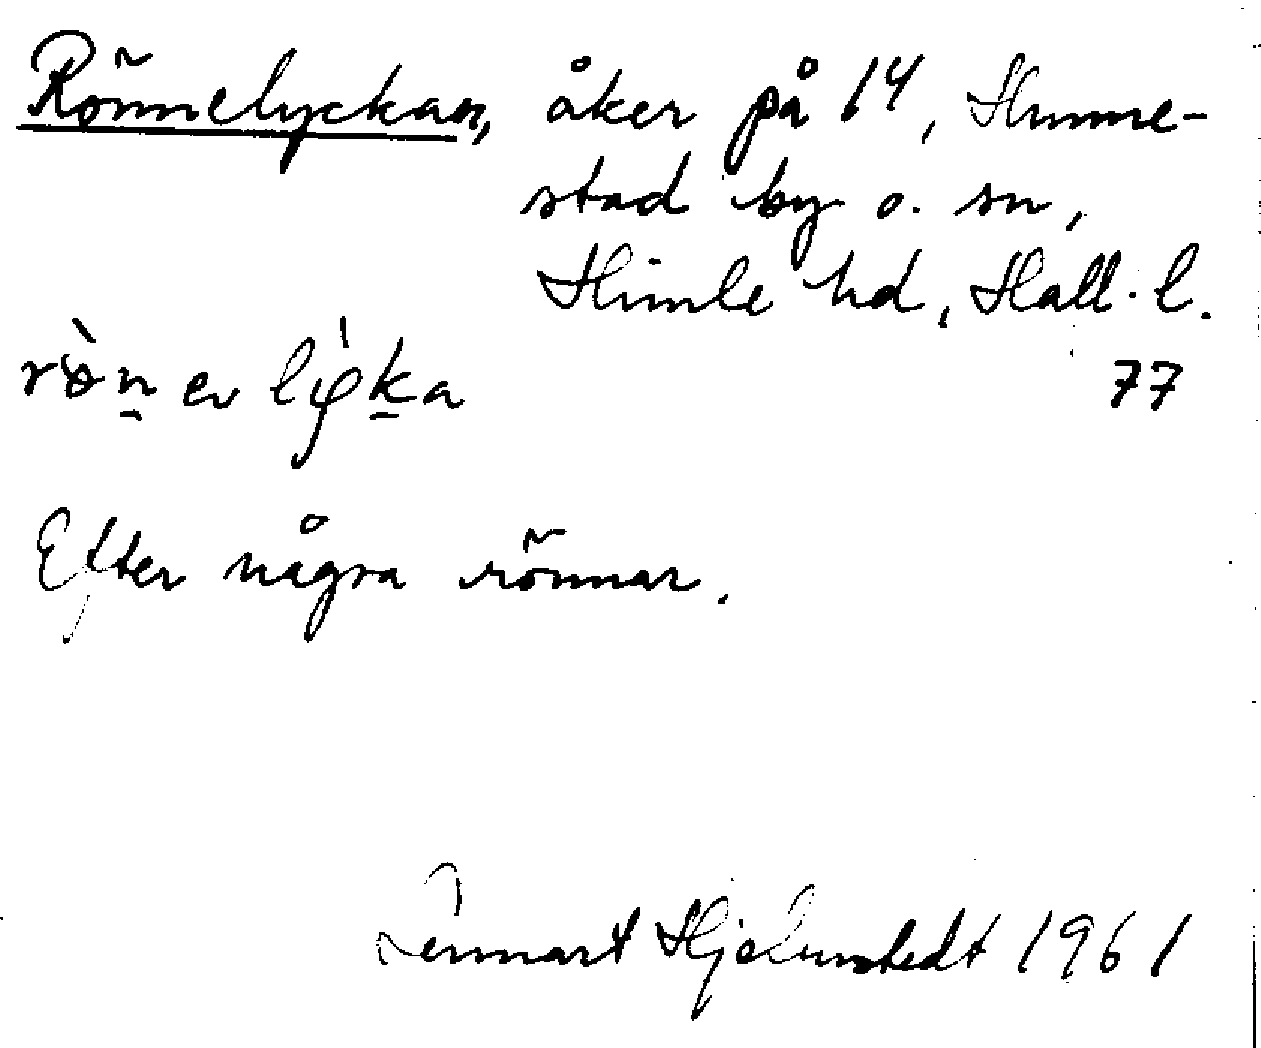 Rönnelyckan, åker på 14, Hunne-
stad by o. sn,
Himle hd, Hall. l.
77
Efter några rönnar.
Lennart Hjelmstedt 1961